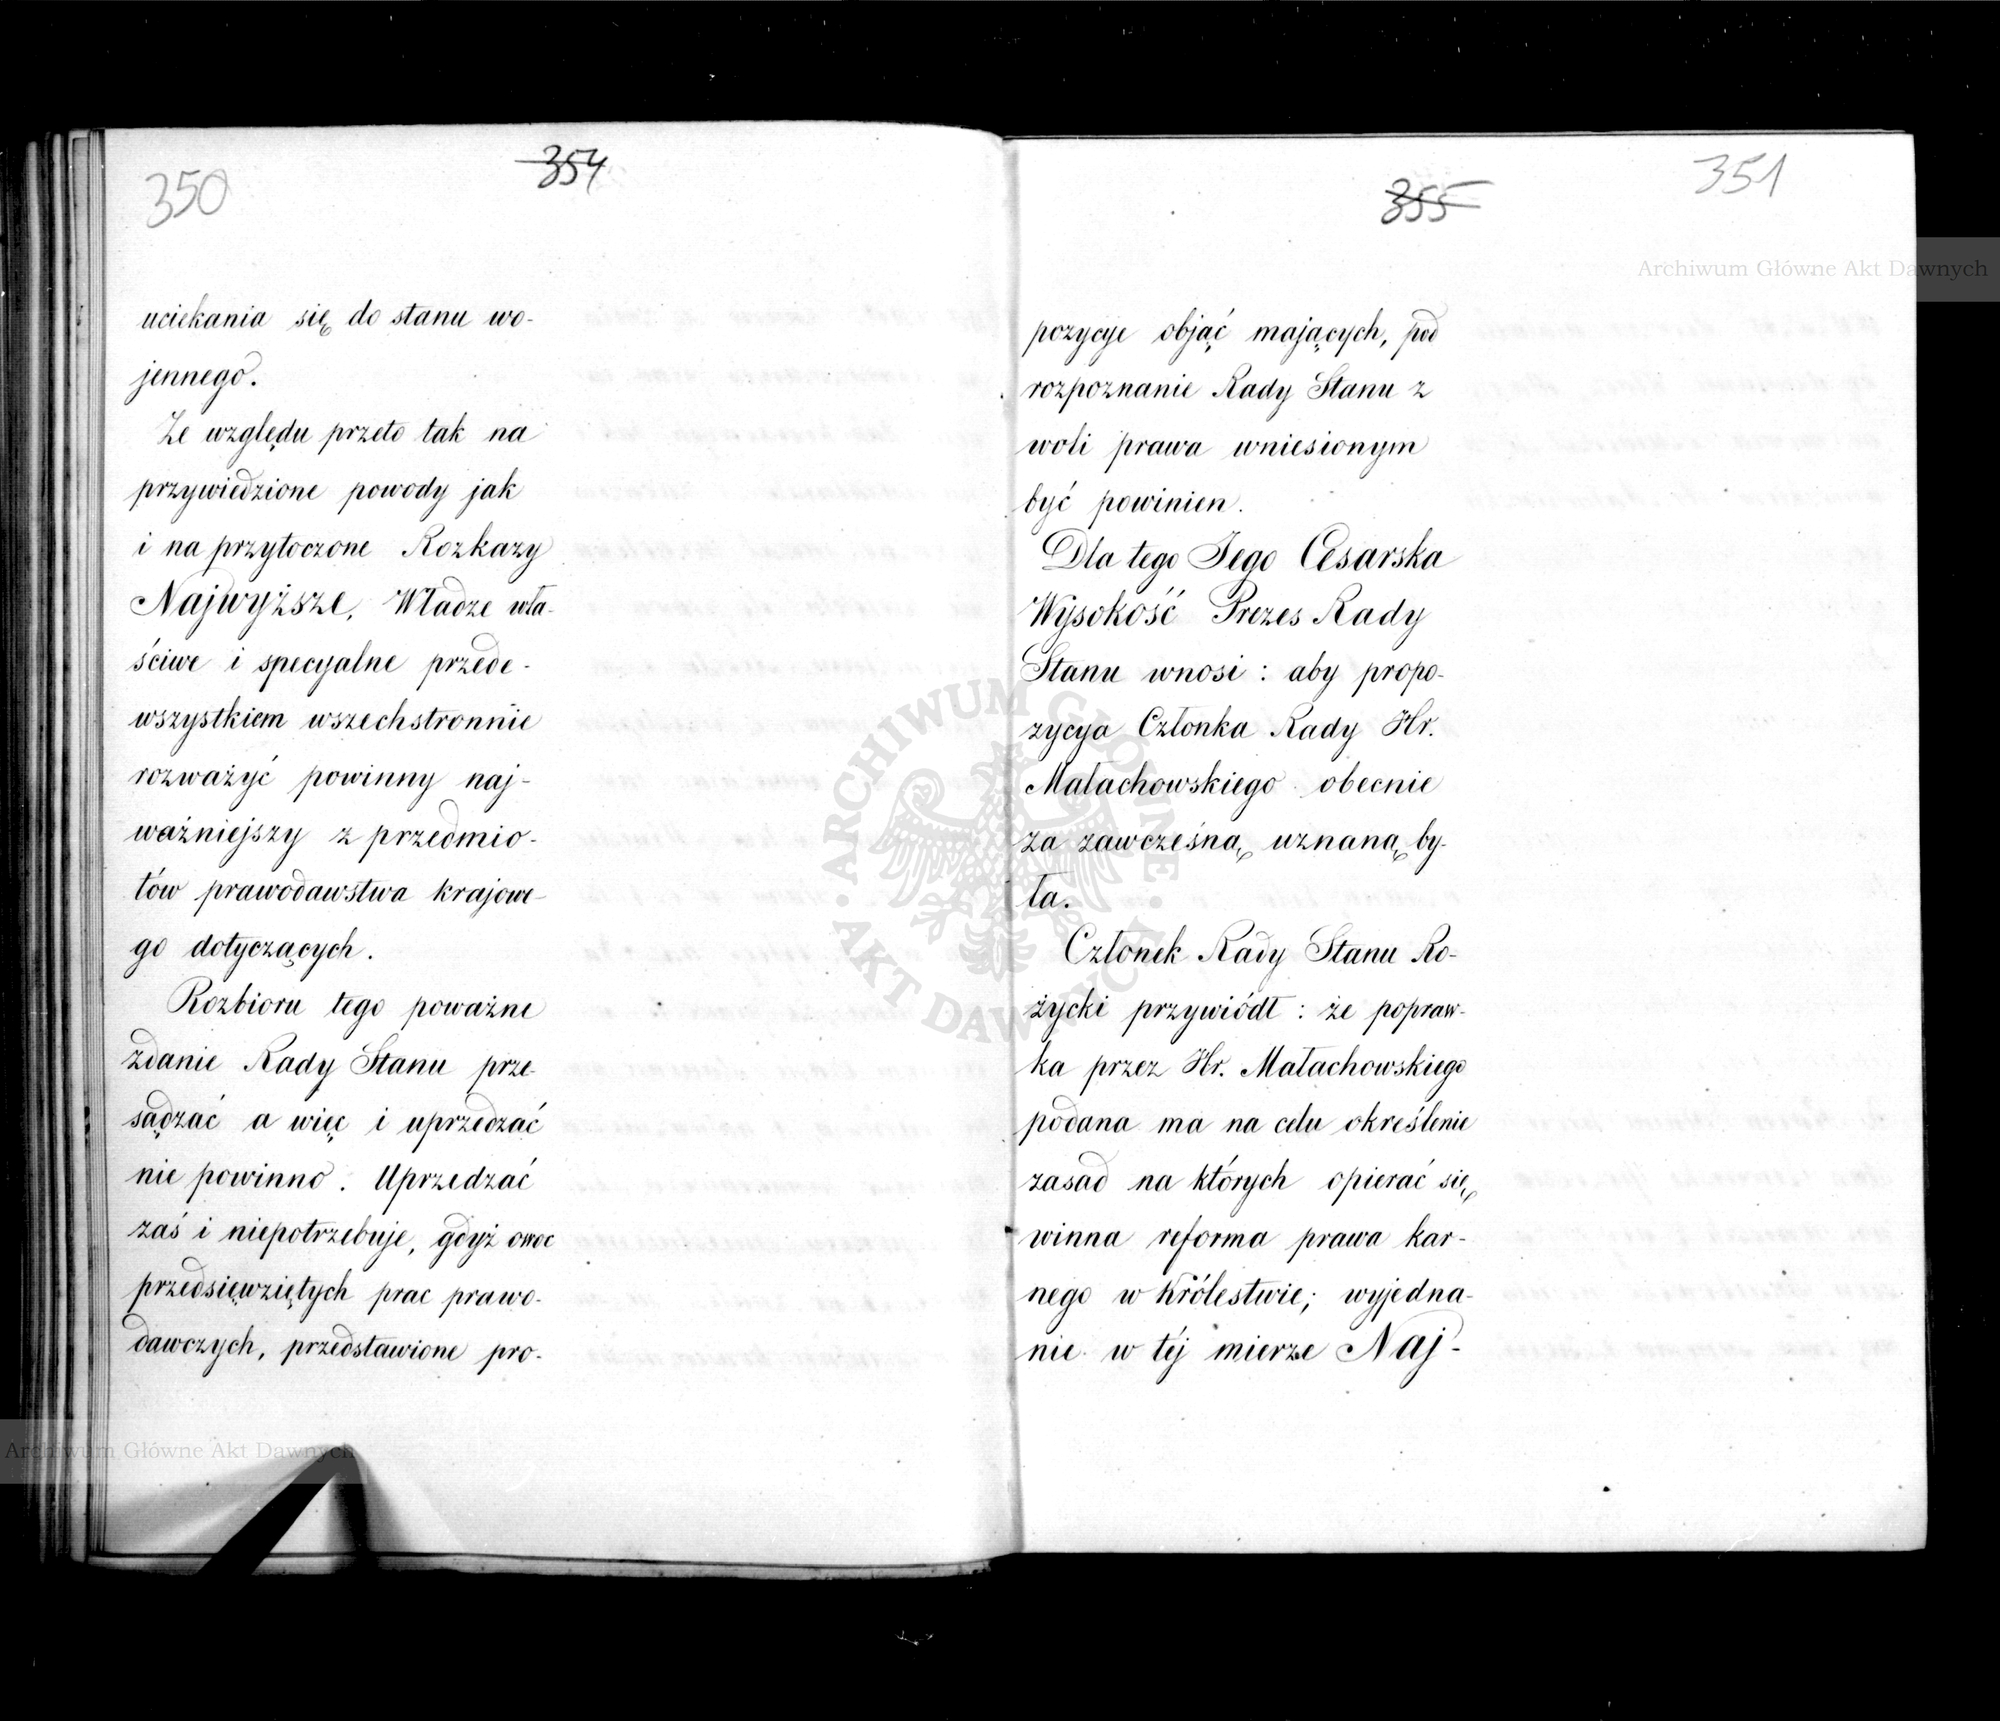 350
354
uciekania się do stanu wo-
jennego.
Ze względu przeto tak na
przywiedzione powody jak
i na przytoczone Rozkazy
Najwyższe, Władze wła-
ściwe i specyalne przede-
wszystkiem wszechstronnie
rozważyć powinny naj-
ważniejszy z przedmio-
tów prawodawstwa krajowe-
go dotyczących.
Rozbioru tego poważne
zdanie Rady Stanu prze-
sądzać a więc i uprzedzać
nie powinno. Uprzedzać
zaś i niepotrzebuje, gdyż owoc
przedsięwziętych prac prawo-
dawczych, przedstawione pro-
351
355
pozycyje objąć mających, pod
rozpoznanie Rady Stanu z
woli prawa wniesionym
być powinien.
Dla tego Jego Cesarska
Wysokość Prezes Rady
Stanu wnosi: aby propo-
zycya Członka Rady Hr.
Małachowskiego obecnie
za zawcześną uznaną by-
ła.
Członek Rady Stanu Ro-
życki przywiódł: że popraw-
ka przez Hr. Małachowskiego
podana ma na celu określenie
zasad na których opierać się
winna reforma prawa kar-
nego w Królestwie; wyjedna-
nie w téj mierze Naj-
Archiwum Główne Akt Dawnych
Archiwum Główne Akt Dawnych
ARCHIWUM GŁÓWNE
AKT DAWNYCH